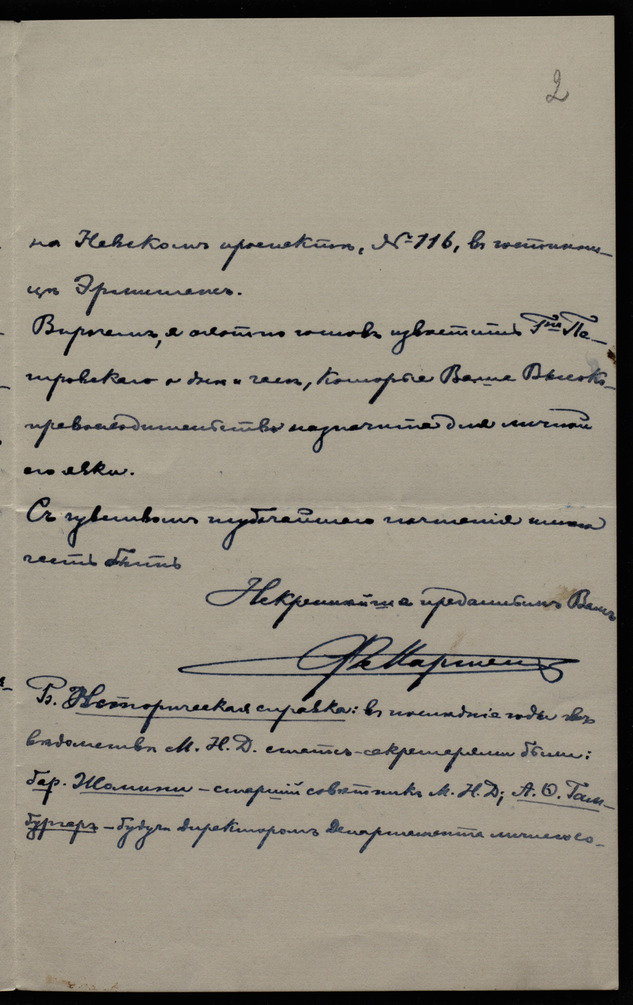 2
на Невскомъ проспектѣ, № 116, въ гостинни-
цѣ Эрмитажъ.
Впрочемъ, я охотно готовъ извѣстить Г-на Па-
тровскаго о днѣ и часѣ, которые Ваше Высоко-
превосходительство назначите для личной
его явки.
Съ чувствомъ глубочайшаго почтенія имѣю
честь быть
Искреннѣйше преданнымъ Вамъ
Ф. Мартенсъ
Историческая справка: въ послѣдніе годы въ
вѣдомствѣ М. И. Д. статсъ-секретарями были:
бар. Жомини – старшій совѣтникъ М. И. Д; А. Ѳ. Гам-
бургеръ – будучи директоромъ Департамента личнаго со-